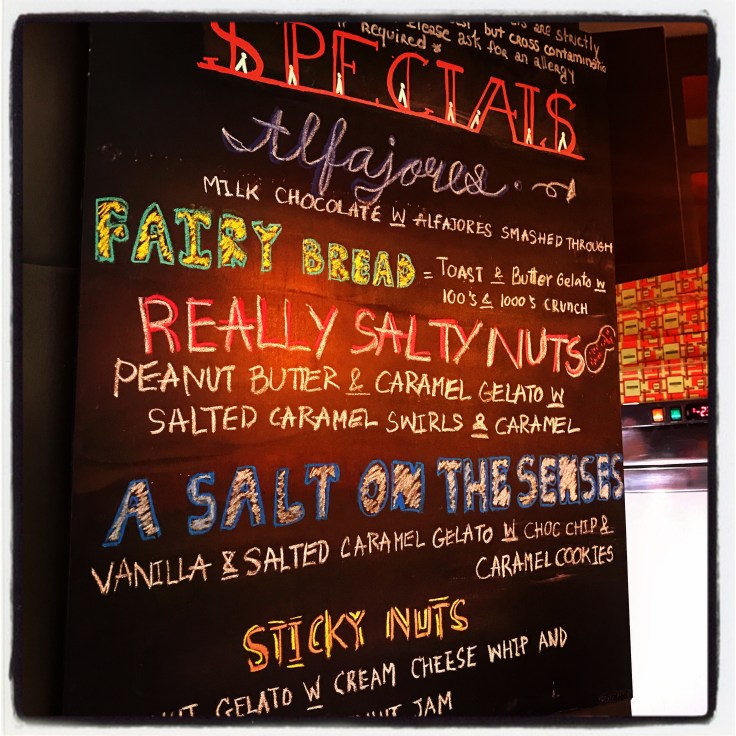 are strictly
but cross contaminatio
if required * Please ask for an allergy
$PECIALS
Alfajores.
MILK CHOCOLATE W ALFAJORES SMASHED THROUGH
FAIRY BREAD = TOAST & Butter Gelato W
100's & 1000's CRUNCH
REALLY SALTY NUTS
PEANUT BUTTER & CARAMEL GELATO W
SALTED CARAMEL SWIRLS & CARAMEL
A SALT ON THE SENSES
VANILLA & SALTED CARAMEL GELATO W CHOC CHIP &
CARAMEL COOKIES
STICKY NUTS
GELATO W CREAM CHEESE WHIP AND
JAM